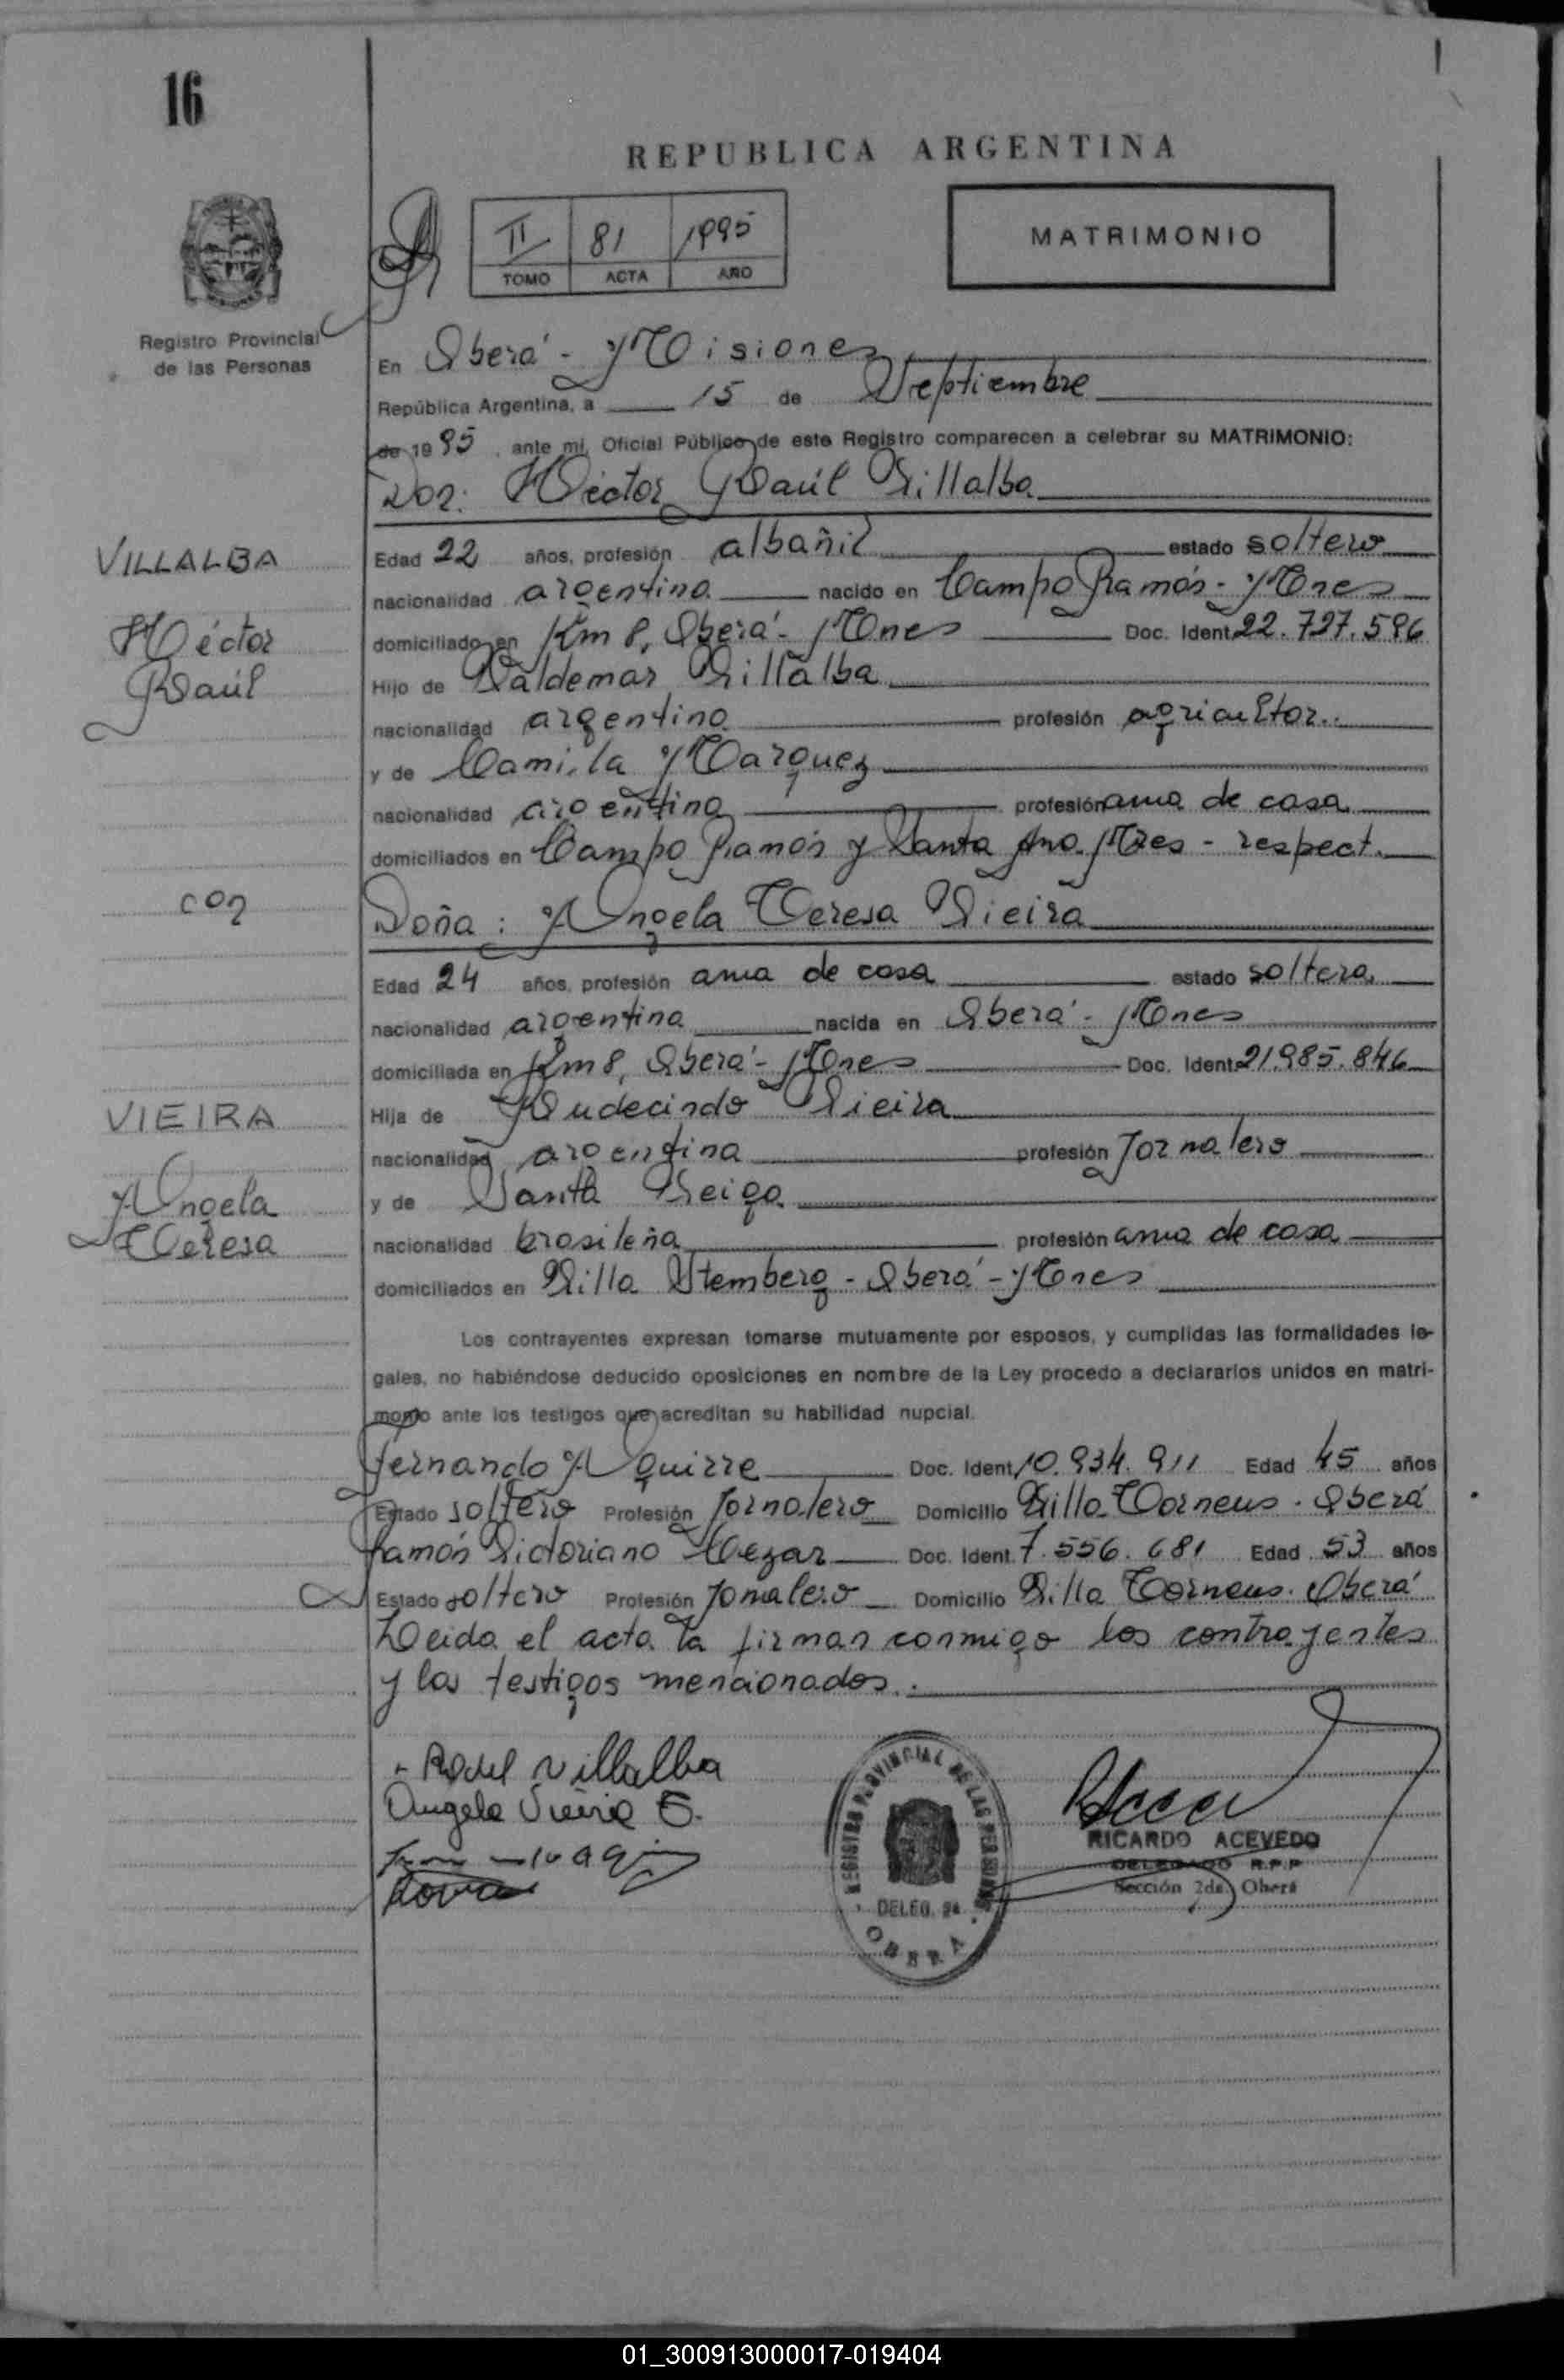 16
REPUBLICA ARGENTINA
II 81 1995
TOMO ACTA AÑO
MATRIMONIO
Registro Provincial
de las Personas
En Oberá - Misiones
República Argentina, a 15 de Septiembre
de 1995, ante mi, Oficial Público de este Registro comparecen a celebrar su MATRIMONIO:
Don: Héctor Raúl Villalba
VILLALBA
Héctor
Raúl
Edad 22 años, profesión albañil estado soltero
nacionalidad argentina nacido en Campo Ramón - Mnes
domiciliado en Km 8, Oberá - Mnes Doc. Ident. 22.727.596
Hijo de Valdemar Villalba
nacionalidad argentina profesión agricultor.
y de Camila Marquez
nacionalidad argentina profesión ama de casa
domiciliados en Campo Ramón y Santa Ana. Mnes - respect.
con
Doña: Angela Teresa Vieira
Edad 24 años, profesión ama de casa estado soltera
nacionalidad argentina nacida en Oberá - Mnes
domiciliada en Km 8, Oberá - Mnes Doc. Ident. 21.985.846
VIEIRA
Angela
Teresa
Hija de Rudecindo Vieira
nacionalidad argentina profesión Jornalero
y de Santa Veiga
nacionalidad brasileña profesión ama de casa
domiciliados en Villa Stemberg - Oberá - Mnes
Los contrayentes expresan tomarse mutuamente por esposos, y cumplidas las formalidades le-
gales, no habiéndose deducido oposiciones en nombre de la Ley procedo a declararlos unidos en matri-
monio ante los testigos que acreditan su habilidad nupcial.
Fernando Aguirre Doc. Ident. 10.934.911 Edad 45 años
Estado soltero Profesión Jornalero Domicilio Villa Torneus. Oberá
Ramón Victoriano Cezar Doc. Ident. 7.556.681 Edad 53 años
Estado soltero Profesión Jornalero Domicilio Villa Torneus. Oberá
Leida el acta la firman conmigo los contrayentes
y los testigos mencionados.
Raul Villalba
Angela Vieira
REGISTRO PROVINCIAL DE LAS PERSONAS
DELEG. 2a.
OBERA
RICARDO ACEVEDO
DELEGADO R.P.P
Sección 2da. Oberá
01_300913000017-019404